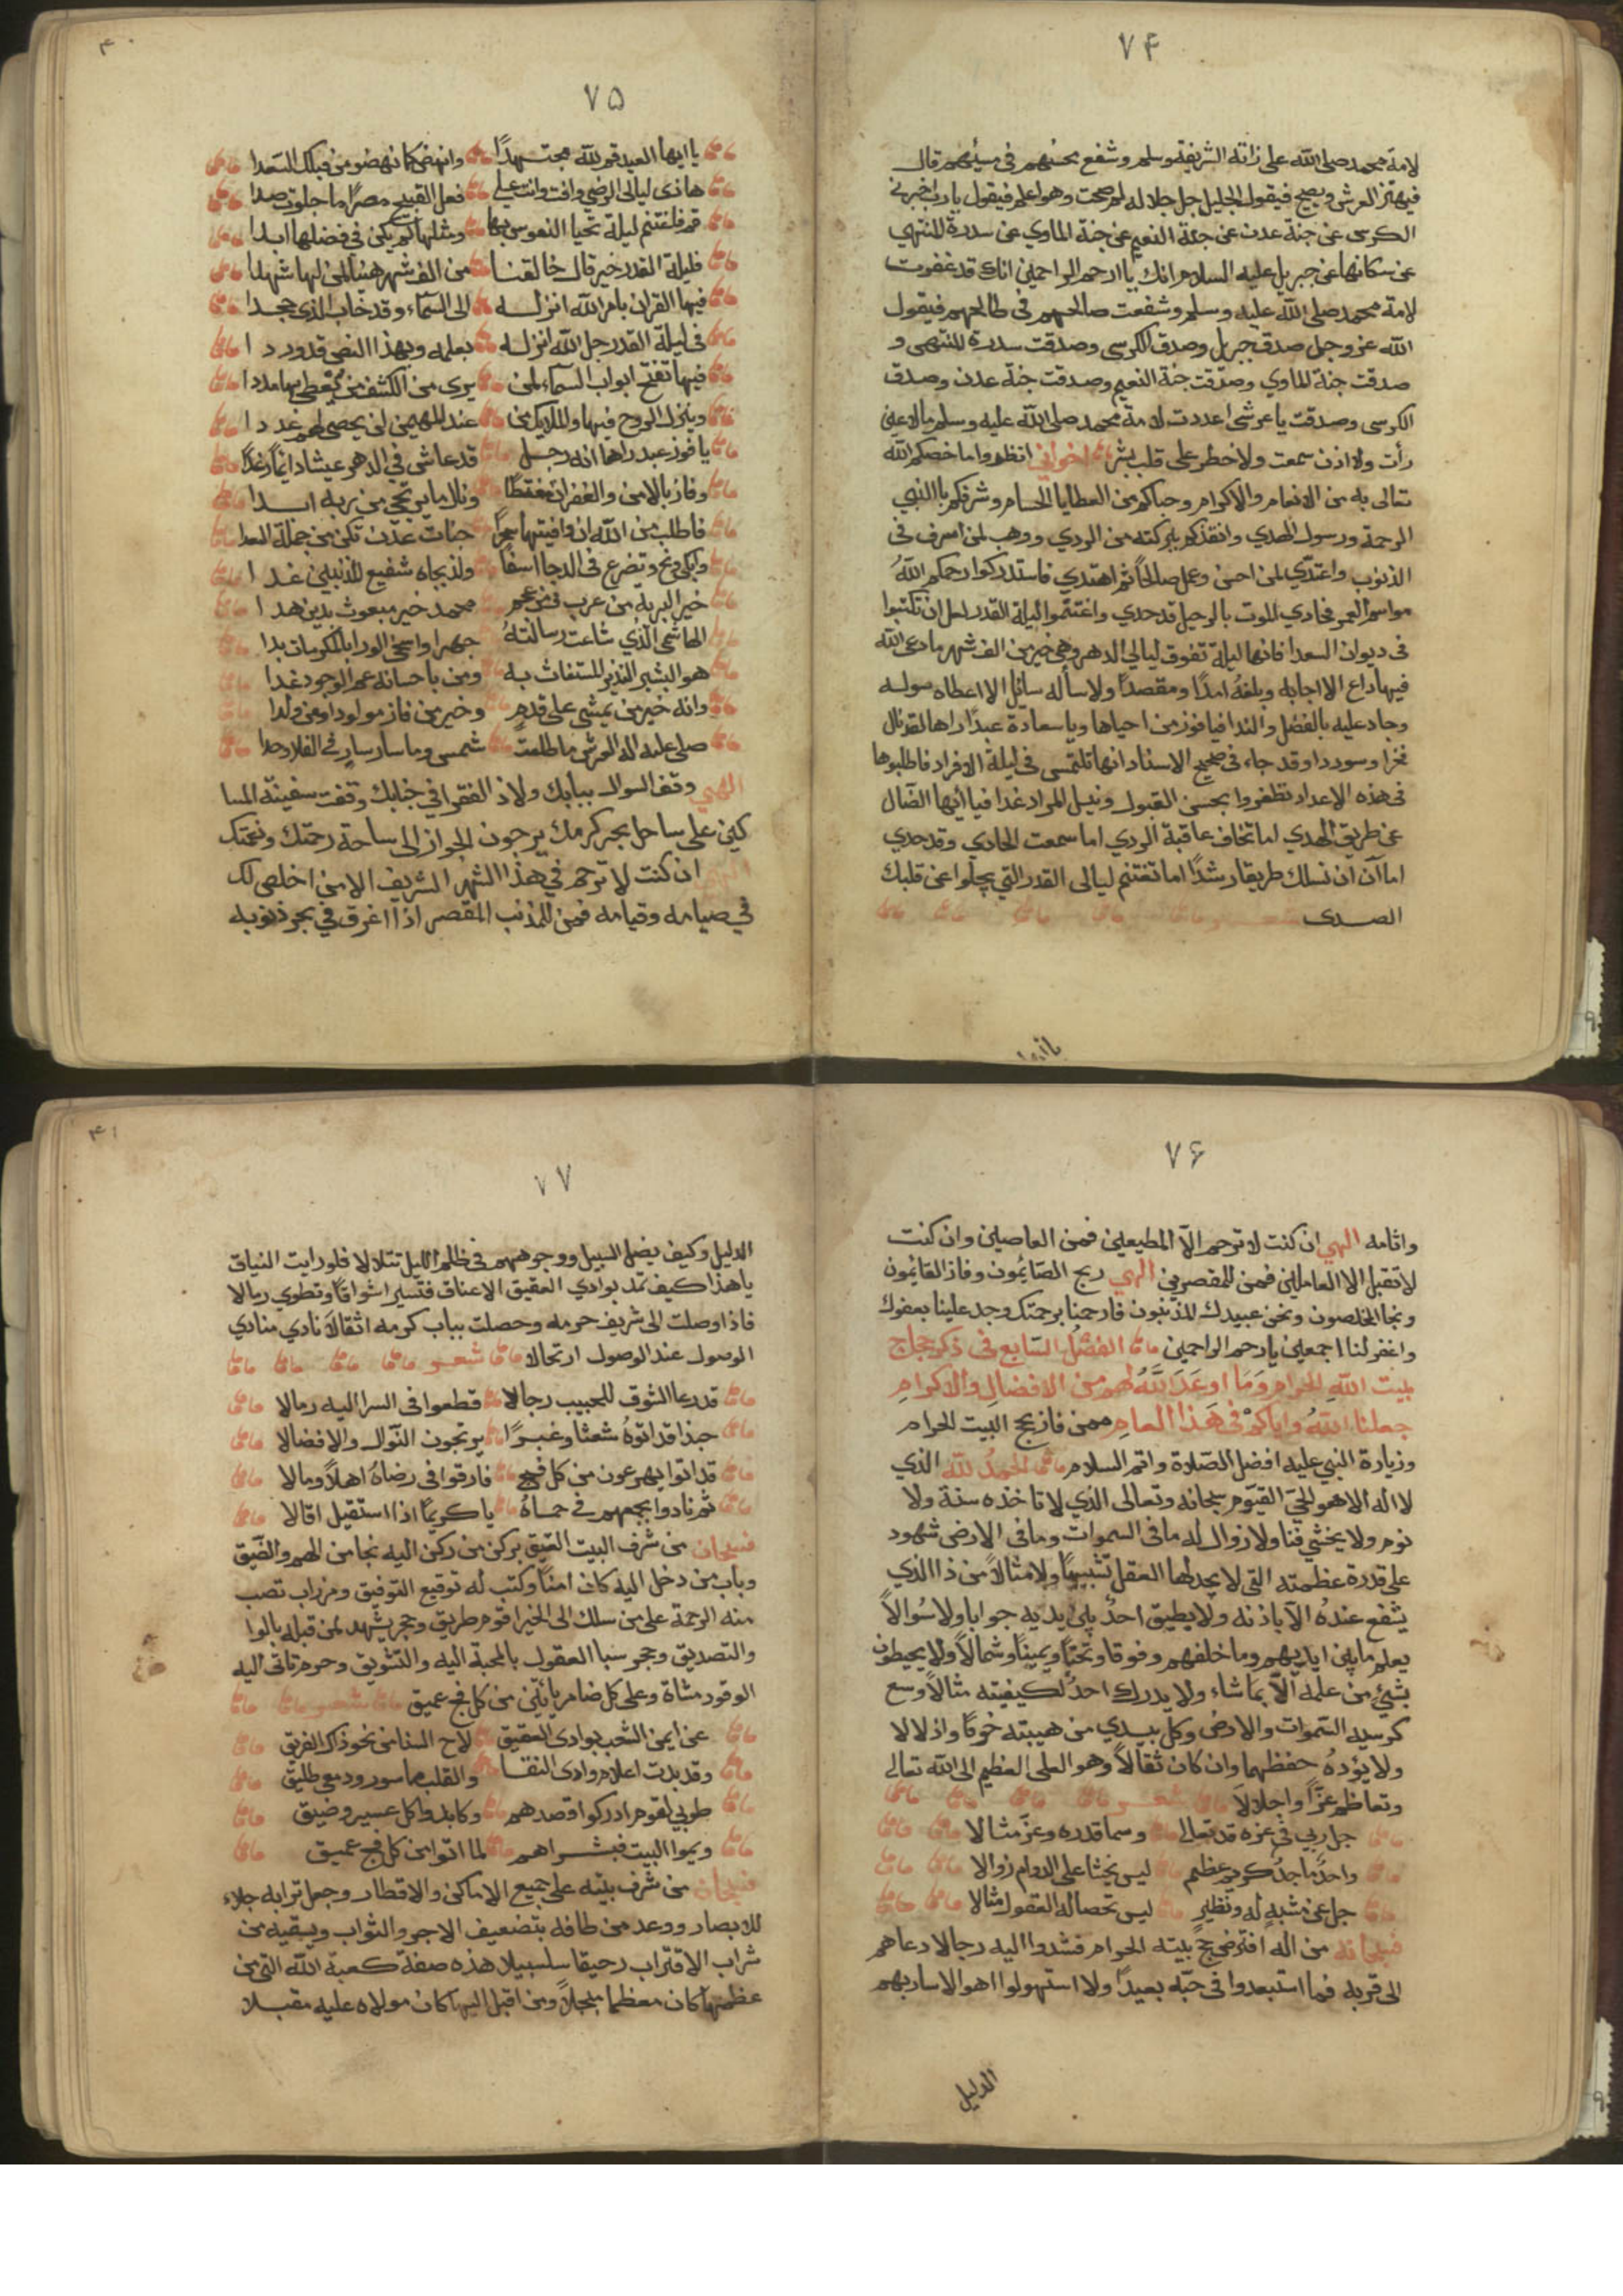 ٧۴
لامة محمد صلى الله على ذاته الشريفة وسلم وشفع محسنهم في مسيئهم قال
فيهتز العرش ويصيح فيقول الجليل جل جلاله لم صحت وهو اعلم فيقول يارب اخبرني
الكرسى عن جنة عدن عن جنة النعيم عن جنة الماوي عن سدرة المنتهي
عن سكانها عن جبريل عليه السلام انك يا ارحم الراحمين انك قد غفرت
لامة محمد صلى الله عليه وسلم وشفعت صالحهم في طالحهم فيقول
الله عز وجل صدق جبريل وصدق الكرسى وصدقت سدرة المنتهى و
صدقت جنة الماوي وصدقت جنة النعيم وصدقت جنة عدن وصدق
الكرسى وصدقت يا عرشى اعددت لامة محمد صلى الله عليه وسلم مالا عين
رأت ولا اذن سمعت ولا خطر على قلب بشر اخواني انظروا ما خصكم الله
تعالى به من الانعام والاكرام وحباكم من العطايا الجسام وشرفكم بالنبي
الرحمة ورسول الهدي وانقذكم ببركته من الردي ووهب لمن اسرف في
الذنوب واعتدي لمن احسن وعمل صالحًا ثم اهتدي فاستدركوا رحمكم الله
مواسم العمر فحادي الموت بالرحيل قد حدي واغتنموا ليلة القدر لعل ان تكتبوا
في ديوان السعدا فانها ليلة تفوق ليالي الدهر وهي خير من الف شهر ما دعى الله
فيها داع الا اجابه وبلغه امدًا ومقصدًا ولا سأله سائل الا اعطاه سوله
وجاد عليه بالفضل والندا فيا فوز من احياها ويا سعادة عبدًا راها لقد نال
فخرا وسوددا وقد جاء في صحيح الاسناد انها تلتمس في ليلة الافراد فاطلبوها
في هذه الاعداد تظفروا بحسن القبول ونيل المراد غدا فيا ايها الضال
عن طريق الهدي اما تخاف عاقبة الردي اما سمعت الحادي وقد حدي
اما آن ان تسلك طريقا رشدًا اما تغتنم ليالى القدر التي يجلوا عن قلبك
الصدى
يا ايها
۴۰
٧۵
يا ايها العبد قم لله مجتهدًا وانهض كما نهضو من قبلك السعدا
هاذي ليالي الرضي وافت وانت على فعل القبيح مصرًا ما جلوت صدا
قم فاغتنم ليلة تحيا النفوس بها ومثلها لم يكن في فضلها ابدا
فليلة القدر خير قال خالقنا من الف شهر هنيئا لمن لها شهدا
فيها القران بامر الله انزله الى السماء وقد خاب الذي جحدا
في ليلة القدر جل الله انزله بعلمه وبهذا النص قد وردا
فيها تفتح ابواب السماء لمن يرى من الكشف من يعطى بها مددا
وينزل الروح فيها والملايك من عند المهيمن لن يحصى لهم عددا
يا فوز عبد راها انه رجل قد عاش في الدهر عيشا دايمًا رغدًا
وفاز بالامن والغفران مغتبطًا ونال ما يرتجي من ربه ابدا
فاطلب من الله ان وافيتها سحرًا جنات عدن تكن من جملة السعدا
وابكي ونح وتضرع في الدجا اسفًا ولذ بجاه شفيع المذنبين غدا
خير البرية من عرب ومن عجم محمد خير مبعوث بدين هدا
الهاشمي الذي شاعت رسالته جهرا واسخى الورا بالمكرمات بدا
هو البشير النذير المستغاث به ومن باحسانه عم الوجود غدا
وانه خير من يمشي على قدم وخير من فاز مولودا ومن ولدا
صلى عليه اله العرش ما طلعت شمس وما سار سار في الفلا وحدا
الهي وقف السوال ببابك ولاذ الفقرا في جنابك وقفت سفينة المسا
كين على ساحل بحر كرمك يرجون الجواز الى ساحة رحمتك ونعمتك
الهي ان كنت لا ترحم في هذا الشهر الشريف الا من اخلص لك
في صيامه وقيامه فمن للمذنب المقصر اذا اغرق في بحر ذنوبه
٧۶
واثامه الهي ان كنت لا ترحم الا المطيعين فمن العاصين وان كنت
لا تقبل الا العاملين فمن للمقصرين الهي ربح الصائمون وفاز القائمون
ونجا المخلصون ونحن عبيدك المذنبون فارحمنا برحمتك وجد علينا بعفوك
واغفر لنا اجمعين يا ارحم الراحمين الفصل السابع في ذكر حجاج
بيت الله الحرام وما اوعد الله لهم من الافضال والاكرام
جعلنا الله واياكم في هذا العام ممن فاز بحج البيت الحرام
وزيارة النبي عليه افضل الصلاة واتم السلام الحمد لله الذي
لا اله الا هو الحي القيوم سبحانه وتعالى الذي لا تاخذه سنة ولا
نوم ولا يخشي فنا ولا زوال له ما في السموات وما في الارض شهود
على قدرة عظمته التي لا يجد لها العقل تشبيها ولا مثالاً من ذا الذي
يشفع عنده الا باذنه ولا يطيق احد بين يديه جوابا ولا سؤالاً
يعلم ما بين ايديهم وما خلفهم وفوقا وتحتًا ويمينًا وشمالاً ولا يحيطون
بشيئ من علمه الا بما شاء ولا يدرك احد لكيفيته مثالاً وسع
كرسيه السموات والارض وكل يبدي من هيبته خوفا واذلالا
ولا يؤده حفظهما وان كان ثقالاً وهو العلى العظيم الى الله تعالى
وتعاظم عزًا واجلالاَ شعر
جل ربي في عزه قد تعالى وسما قدره وعز مثالا
واحدٌ ماجدٌ كريم عظيم ليس يخشا على الدوام زوالا
جل عن مشبهٍ له ونظيرٍ ليس تحصا له العقول مثالا
فسبحانه من اله افترض حج بيته الحرام فشدوا اليه رجالا دعاهم
الى قربه فما استبعدوا في حبه بعيدًا ولا استهولوا اهوالا سار بهم
الدليل
۴١
٧٧
الدليل وكيف يضل السبيل ووجوههم في ظلم الليل تتلالا فلو رايت النياق
يا هذا كيف تمد بوادي العقيق الاعناق فتسير اشواقًا وتطوي رمالا
فاذا وصلت الى شريف حرمه وحصلت بباب كرمه اثقالا نادي منادي
الوصول عند الوصول ارتحالا شعر
قد دعا الشوق للحبيب رجالا قطعوا في السرا اليه رمالا
حبذا قد اتوهُ شعثا وغبرًا يرتجون النوال والافضالا
قد اتوا يهرعون من كل فج فارقوا في رضاهُ اهلاً ومالا
ثم نادوا بجمعهم في حماهُ يا كريمًا اذا استقيل اقالا
فسبحان من شرف البيت العتيق بركن من ركن اليه نجا من الهم والضيق
وباب من دخل اليه كان امنًا وكتب له توقيع التوفيق ومزراب تصب
منه الرحمة على من سلك الى الخير اقوم طريق وحجر يشهد لمن قبله بالوا
والتصديق وحجر سبا العقول بالمحبة اليه والتشويق وحرم تاتى اليه
الوفود مشاة وعلى كل ضامر يأتين من كل فج عميق شعر
عن ايمن الشعب بوادى العقيق لاح السنا من نحو ذاك الفريق
وقد بدت اعلام وادى النقا والقلب ماسور ودمعي طليق
طوبي لقوم ادركوا قصدهم وكابدوا كل عسير وضيق
ويموا البيت فبشراهم لما اتوا من كل فج عميق
فسبحان من شرف بيته على جميع الاماكن والاقطار وجعل ترابه جلاء
للابصار ووعد من طافه بتضعيف الاجر والثواب ويسقيه من
شراب الاقتراب رحيقا سلسبيلا هذه صفة كعبة الله التي من
عظمتها كان معظما مبجلاً ومن اقبل اليها كان مولاه عليه مقبلا